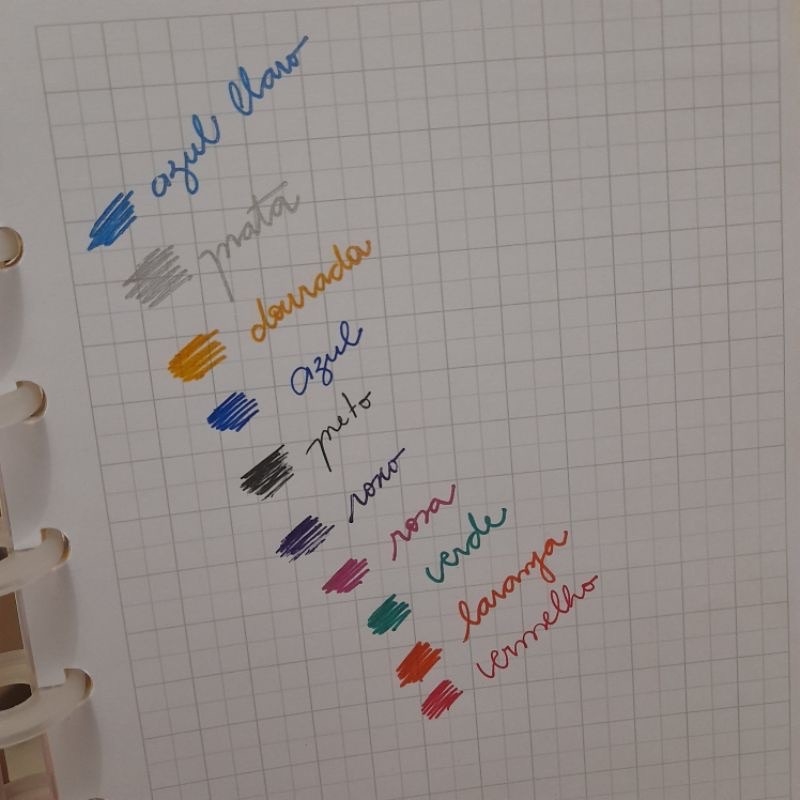 azul claro
prata
dourada
azul
preto
roxo
rosa
verde
laranja
vermelho